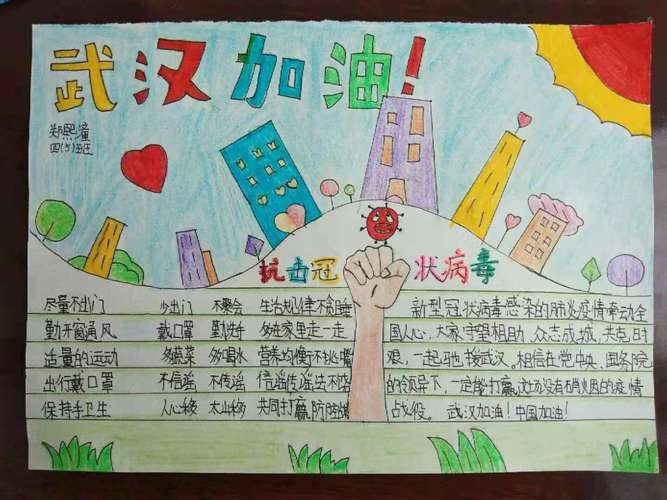 武汉加油！
郑熙潼
四(5)班
抗击冠状病毒
尽量不出门 少出门 不聚会 生活规律不贪睡
勤开窗通风 戴口罩 勤洗手 多在家里走一走
适量的运动 多蔬菜 多喝水 营养均衡不挑嘴
出行戴口罩 不信谣 不传谣 信谣传谣法不容
保持手卫生 人心移 太山移 共同打赢防
新型冠状病毒感染的肺炎疫情牵动全
国人心，大家守望相助，众志成城，共克时
艰，一起驰援武汉。相信在党中央、国务院
的领导下，一定能打赢这场没有硝烟的疫情
战役。武汉加油！中国加油！